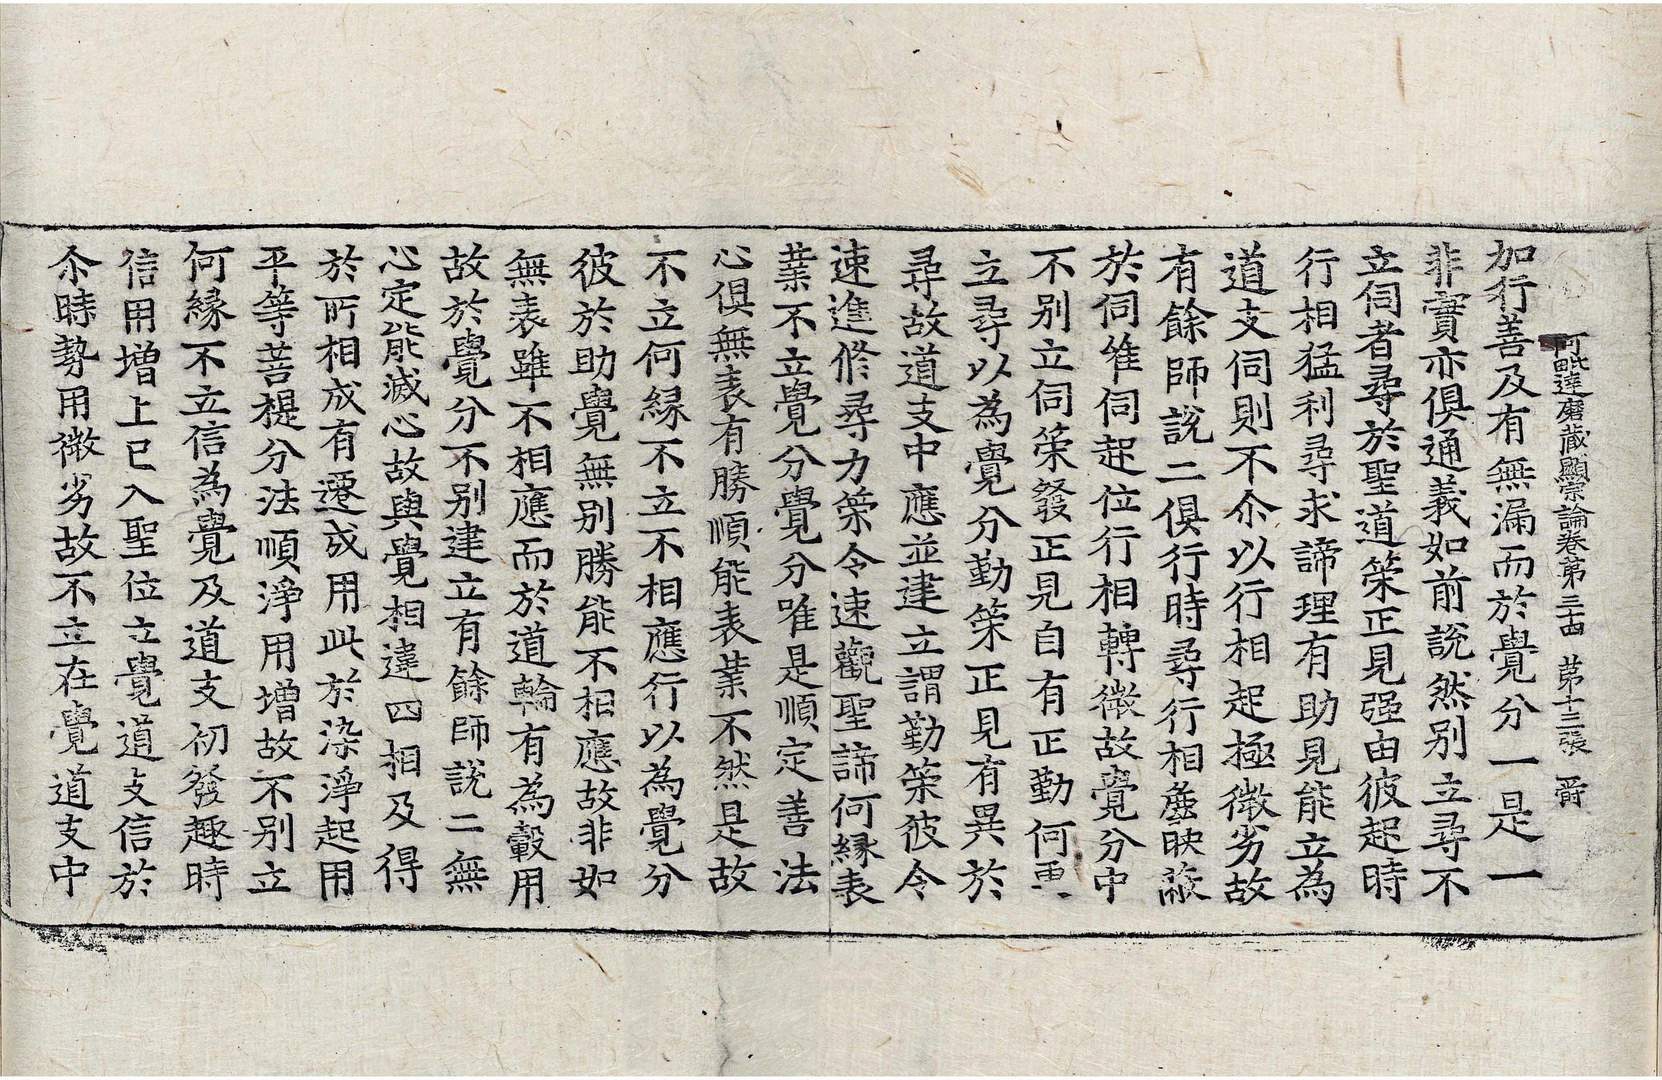 阿毗達磨藏顯宗論卷第三十四 第十三張 爵
加行善及有無漏而於覺分一是一
非實亦俱通義如前說然別立尋不
立伺者尋於聖道策正見强由彼起時
行相猛利尋求諦理有助見能立為
道支伺則不尒以行相起極微劣故
有餘師說二俱行時尋行相麤映蔽
於伺唯伺起位行相轉微故覺分中
不別立伺策發正見自有正勤何更
立尋以為覺分勤策正見有異於
尋故道支中應並建立謂勤策彼令
速進修尋力策令速觀聖諦何緣表
業不立覺分覺分唯是順定善法
心俱無表有勝順能表業不然是故
不立何緣不立不相應行以為覺分
彼於助覺無別勝能不相應故非如
無表雖不相應而於道輪有為轂用
故於覺分不別建立有餘師說二無
心定能滅心故與覺相違四相及得
於所相成有遷成用此於染淨起用
平等菩提分法順淨用增故不別立
何緣不立信為覺及道支初發趣時
信用增上已入聖位立覺道支信於
尒時勢用微劣故不立在覺道支中